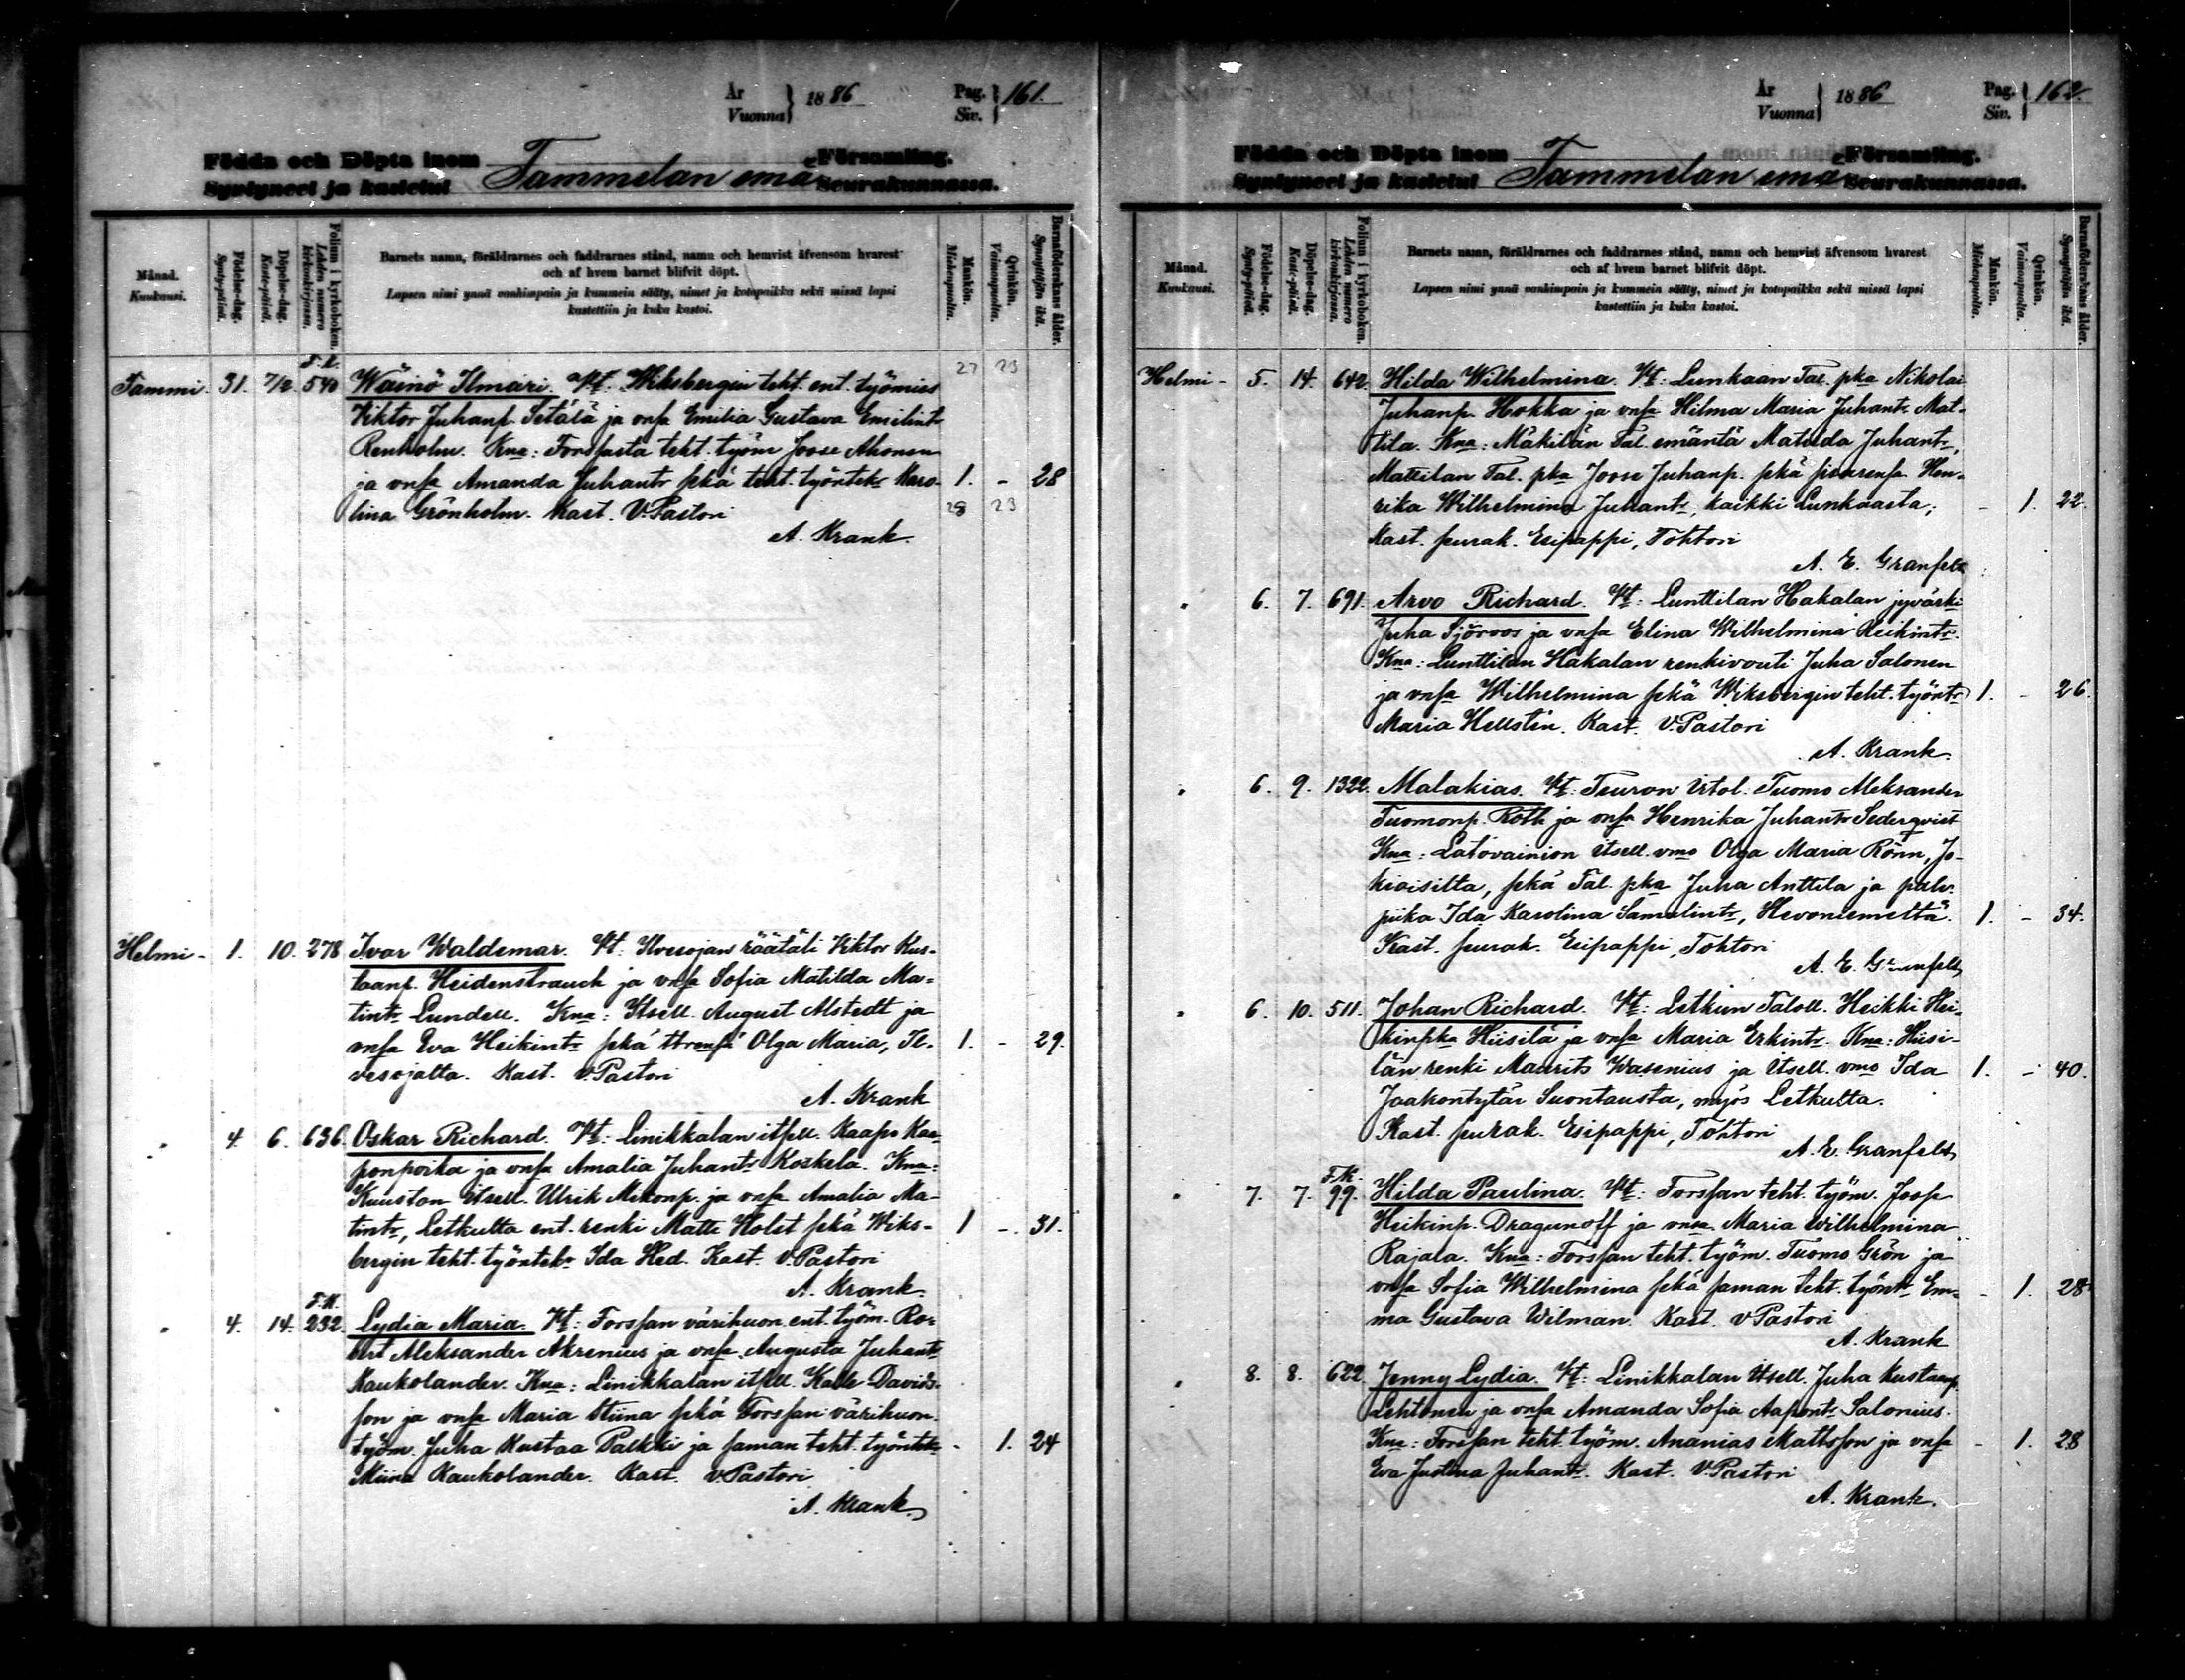 År
Vuonna } 1886 Pag.
Siv. } 161.
Födda och Döpta inom Församling.
Syntyneet ja kastetut Tammelan emä Seurakunnassa.
Månad.
Kuukausi.
Födelse-dag.
Synty-päivä.
Döpelse-dag.
Kaste-päivä.
Folium i kyrkoboken.
Lehden numero kirkonkirjassa.
Barnets namn, föräldrarnes och faddrarnes stånd, namn och hemvist äfvensom hvarest
och af hvem barnet blifvit döpt.
Lapsen nimi ynnä vanhimpain ja kummein sääty, nimet ja kotopaikka sekä missä lapsi
kastettiin ja kuka kastoi.
Mankön.
Miehenpuolta.
Qvinkön.
Vaimonpuolta.
Barnaföderskans ålder.
Synnyttäjän ikä.
27 23
Tammi. 31. 7/2. 540 Wäinö Ilmari. Vt. Wiksbergin teht. ent. työmies
Viktor Juhanp. Setälä ja vnsa Emilia Gustava Emilint.
Renholm. Kna: Forssasta teht. työm Joose Ahonen
ja vnsa Amanda Juhantr sekä teht. työntekr Karo- 1. - 28
lina Grönholm. Kast. V. Pastori 28 23
A. Krank.
Helmi- 1. 10. 278 Ivar Waldemar. Vt: Ilvesojan räätäli Viktor Kus-
taanp. Heidenstrauch ja vnsa Sofia Matilda Ma-
tintr Lundell. Kna: Itsell. August Alstedt ja
vnsa Eva Heikintr sekä ttrensä Olga Maria, Il- 1. - 29.
vesojalta. Kast. v. Pastori
A. Krank
" 4 6. 636. Oskar Richard. Vt: Linikkalan itsell. Kaapo Kaa-
ponpoika ja vnsa Amalia Juhantr Koskela. Kna:
Kuuston itsell. Ulrik Mikonp. ja vnsa Amalia Ma-
tintr, Letkulta ent. renki Matti Holst sekä Wiks- 1 - 31.
bergin teht. työntekr Ida Hed. Kast. v. Pastori
A. Krank.
F.K.
" 4. 14. 232. Lydia Maria. Vt: Forssan värihuon. ent. työm. Ro-
bert Aleksander Akrenius ja vnsa Augusta Juhantr
Kaukolander. Kna: Linikkalan itsell. Kalle Davids-
son ja vnsa Maria Stiina sekä Forssan värihuon.
työm. Juha Kustaa Palkki ja saman teht. työntekr - 1. 24
Miina Kaukolander. Kast. v. Pastori
A. Krank.
År
Vuonna } 1886 Pag.
Siv. } 162.
Födda och Döpta inom Församling.
Syntyneet ja kastetut Tammelan emä Seurakunnassa.
Månad.
Kuukausi.
Födelse-dag.
Synty-päivä.
Döpelse-dag.
Kaste-päivä.
Folium i kyrkoboken.
Lehden numero kirkonkirjassa.
Barnets namn, föräldrarnes och faddrarnes stånd, namn och hemvist äfvensom hvarest
och af hvem barnet blifvit döpt.
Lapsen nimi ynnä vanhimpain ja kummein sääty, nimet ja kotopaikka sekä missä lapsi
kastettiin ja kuka kastoi.
Mankön.
Miehenpuolta.
Qvinkön.
Vaimonpuolta.
Barnaföderskans ålder.
Synnyttäjän ikä.
Helmi- 5. 14. 642. Hilda Wilhelmina. Vt: Lunkaan Tal. pka Nikolai
Juhanp. Hokka ja vnsa Hilma Maria Juhantr Mat-
tila. Kna: Mäkilän Tal. emäntä Matilda Juhantr,
Mattilan Tal. pka Joose Juhanp. sekä sisarensa Hen-
rika Wilhelmina Juhantr, kaikki Lunkaasta, - 1. 22.
Kast. seurak. Esipappi, Tohtori
A. E. Granfelt
" 6. 7. 691. Arvo Richard. Vt: Lunttilan Hakalan jyvärki
Juha Sjöroos ja vnsa Elina Wilhelmina Heikintr.
Kna: Lunttilan Hakalan renkivouti Juha Salonen
ja vnsa Wilhelmina sekä Wiksbergin teht. työntr 1. - 26.
Maria Hellstén. Kast. V. Pastori
A. Krank.
" 6. 9. 1322. Malakias. Vt: Teuron Irtol. Tuomo Aleksander
Tuomonp. Roth ja vnsa Henrika Juhantr Sederqvist
Kna: Latovainion itsell. vmo Olga Maria Rönn, Jo-
kioisilta, sekä Tal. pka Juha Anttila ja palv.
piika Ida Karolina Samulintr, Hevoniemeltä. 1. - 34.
Kast. seurak. Esipappi, Tohtori
A. E. Granfelt
" 6. 10. 511. Johan Richard. Vt: Letkun Taloll. Heikki Hei-
kinpka Hiisilä ja vnsa Maria Erkintr. Kna: Hiisi-
län renki Maurits Wasenius ja Itsell. vmo Ida 1. - 40.
Jaakontytär Suontausta, myös Letkulta.
Kast. seurak. Esipappi, Tohtori
A. E. Granfelt
F.K.
" 7. 7. 99. Hilda Paulina. Vt: Forssan teht. työm. Joose
Heikinp. Dragunoff ja vnsa Maria Wilhelmina
Rajala. Kna: Forssan teht. työm. Tuomo Grön ja
vnsa Sofia Wilhelmina sekä saman teht. työntr Em- - 1. 28.
ma Gustava Wilman. Kast. v Pastori
A. Krank
" 8. 8. 622. Jenny Lydia. Vt: Linikkalan Itsell. Juha Kustaanp.
Lehtonen ja vnsa Amanda Sofia Aapontr Salonius.
Kna: Forssan teht. työm. Ananias Mattsson ja vnsa - 1. 28
Eva Justina Juhantr. Kast. V. Pastori
A. Krank.